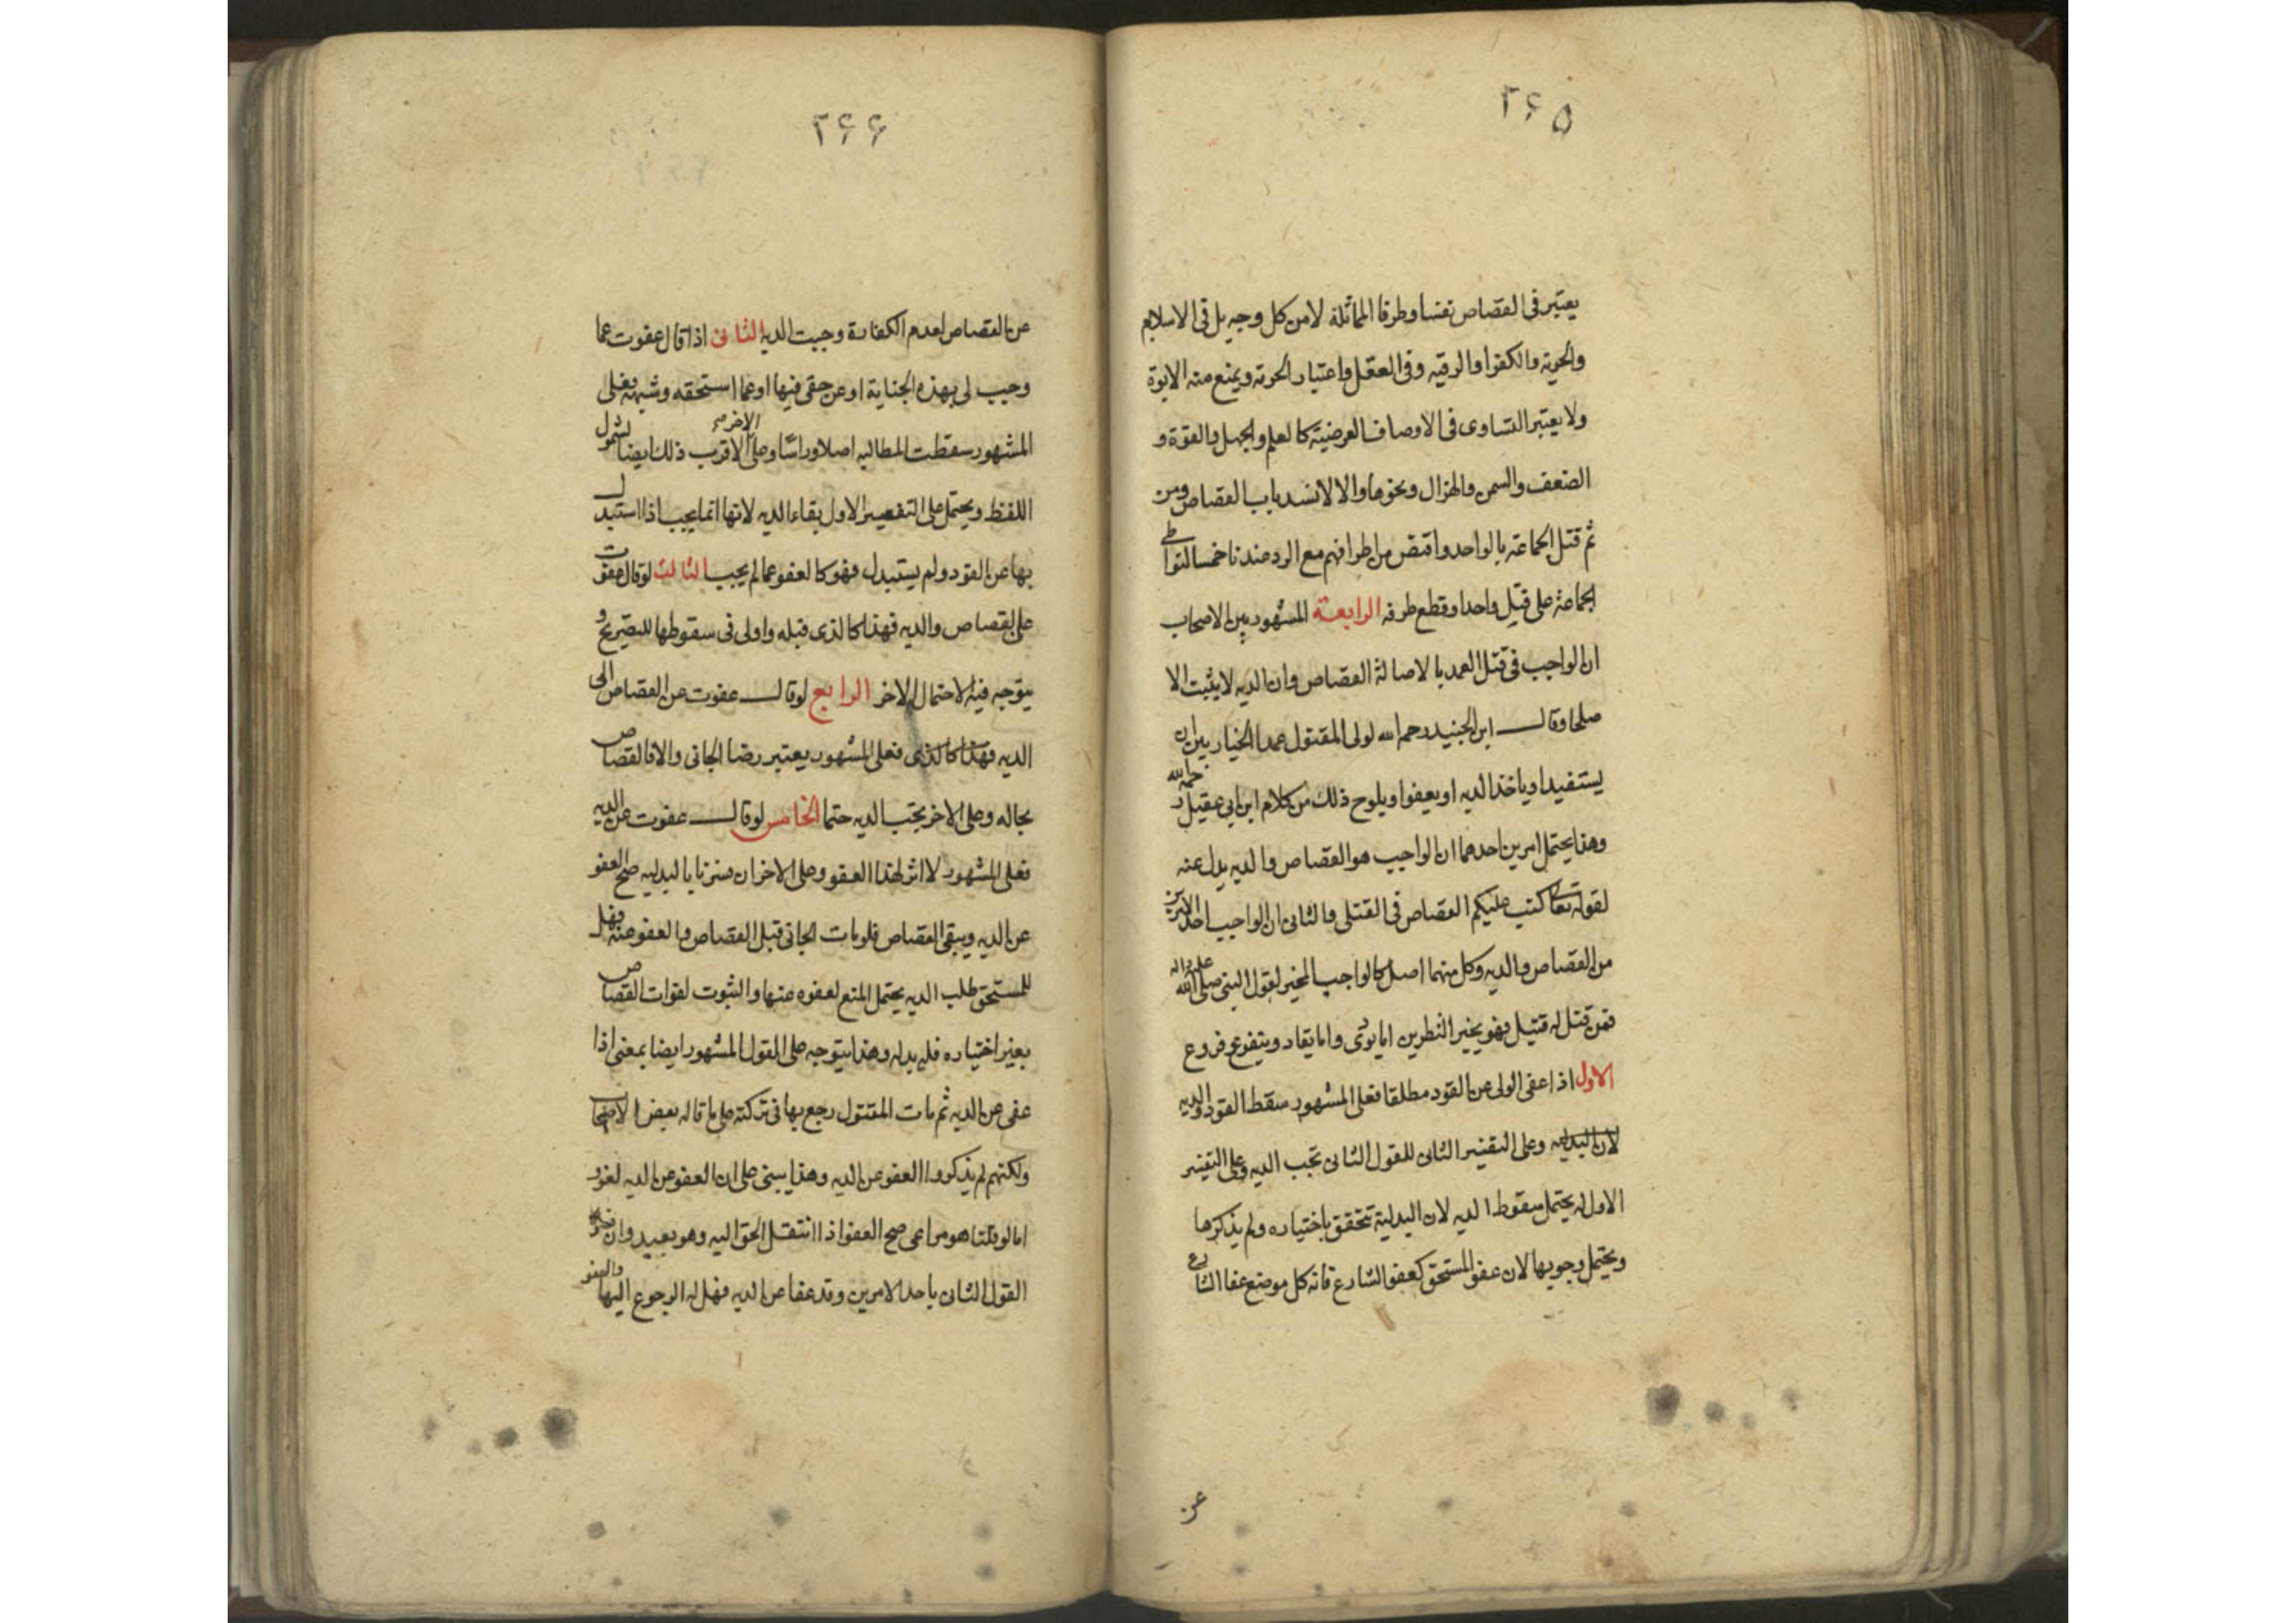 ۲۶۵
يعتبر فى القصاص نفسا وطرفا المماثلة لا من كل وجه بل فى الاسلام
والحرية والكفر او الرقيه وفى العقل واعتبار الحرمة ويمنع منه الابوة
ولا يعتبر التساوى فى الاوصاف العرضية كالعلم والجهل والقوة و
الضعف والسمن والهزال ونحوها والا لانسد باب القصاص ومن
ثم قتل الجماعة بالواحد واقتص من اطرافهم مع الرد عندنا حسما لتواطى
الجماعة على قتل واحد او قطع طرفه الرابعة المشهور بين الاصحاب
ان الواجب فى قتل العمد بالاصالة القصاص وان الديه لا يثبت الا
صلحا وقال ابن الجنيد رحمه الله لولى المقتول عمدا الخيار بين ان
يستقيد او ياخذ الديه او يعفوا ويلوح ذلك من كلام ابن ابى عقيل رحمه الله
وهذا يحتمل امرين احدهما ان الواجب هو القصاص والديه بدل عنه
لقوله تعا كتب عليكم القصاص فى القتلى والثانى ان الواجب احد الامرين
من القصاص والديه وكل منهما اصل كالواجب المخير لقول النبى صلى الله عليه واله
فمن قتل له قتيل فهو بخير النظرين اما يودى واما يقاد ويتفرع فروع
الاول اذا عفى الولى عن القود مطلقا فعلى المشهور سقط القود والديه
لان البدليه وعلى التفسير الثانى للقول الثانى تجب الديه وعلى التفسير
الاول له يحتمل سقوط الديه لان البدلية تتحقق باختياره ولم يذكرها
ويحتمل وجوبها لان عفو المستحق كعفو الشارع فانه كل موضع عفا الشارع
عن
۲۶۶
عن القصاص لعدم الكفاءة وجبت الديه الثانى اذا قال عفوت عما
وجب لى بهذه الجناية او عن حقى فيها او عما استحقه وشبهه فعلى
المشهور سقطت المطالبه اصلا وراسا وعلى الاخر الاقرب ذلك ايضا لشمول
اللفظ ويحتمل على التفسير الاول بقاء الديه لانها انما يجب اذا استبدل
بها عن القود ولم يستبدل فهو كالعفو عما لم يجب الثالث لو قال عفوت
على القصاص والديه فهذا كالذى قبله واولى فى سقوطها للتصريح و
يتوجه فيه الاحتمال الاخر الرابع لو قال عفوت عن القصاص الى
الديه فهذا كالذى فعلى المشهور يعتبر رضا الجانى والا فالقصاص
بحاله وعلى الاخر يجب الديه حتما الخامس لو قال عفوت عن الديه
فعلى المشهور لا اثر لهذا العفو وعلى الاخر ان فسرنا بالبدليه صح العفو
عن الديه ويبقى القصاص فلو مات الجانى قبل القصاص والعفو عنه فهل
للمستحق طلب الديه يحتمل المنع لعفوه عنها والثبوت لفوات القصاص
بغير اختياره فله بدله وهذا يتوجه على القول المشهور ايضا بمعنى اذا
عفى عن الديه ثم مات المقتول رجع بها فى تركته على ما قاله بعض الاصحاب
ولكنهم لم يذكروا العفو عن الديه وهذا يبنى على ان العفو عن الديه لغو
اما لو قلنا هو مراعى صح العفو اذا انتقل الحق اليه وهو بعيد وان
القول الثانى باحد الامرين وقد عفا عن الديه فهل له الرجوع اليها والعفو